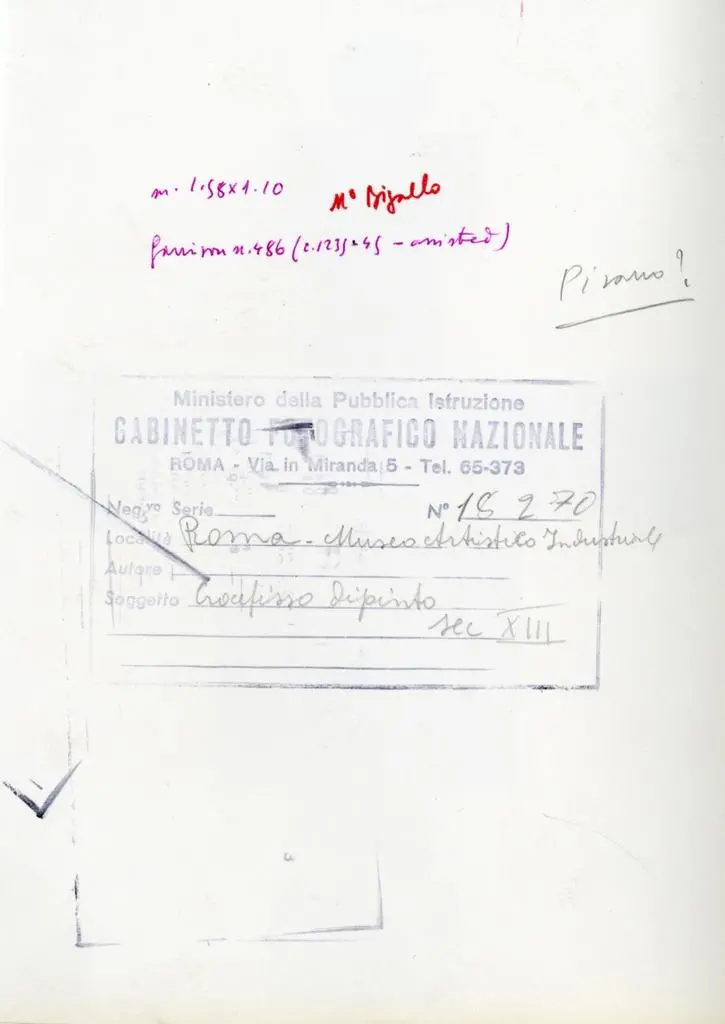 m. 1.58x1.10
Mº Bigallo
Garrison n.486 (c.1235-45 - assisted)
Pisano?
Ministero della Pubblica Istruzione
GABINETTO FOTOGRAFICO NAZIONALE
ROMA - Via in Miranda, 5 - Tel. 65-373
Neg.vo Serie Nº 18270
Località Roma - Museo Artistico Industriale
Autore
Soggetto Crocifisso dipinto
sec XIII